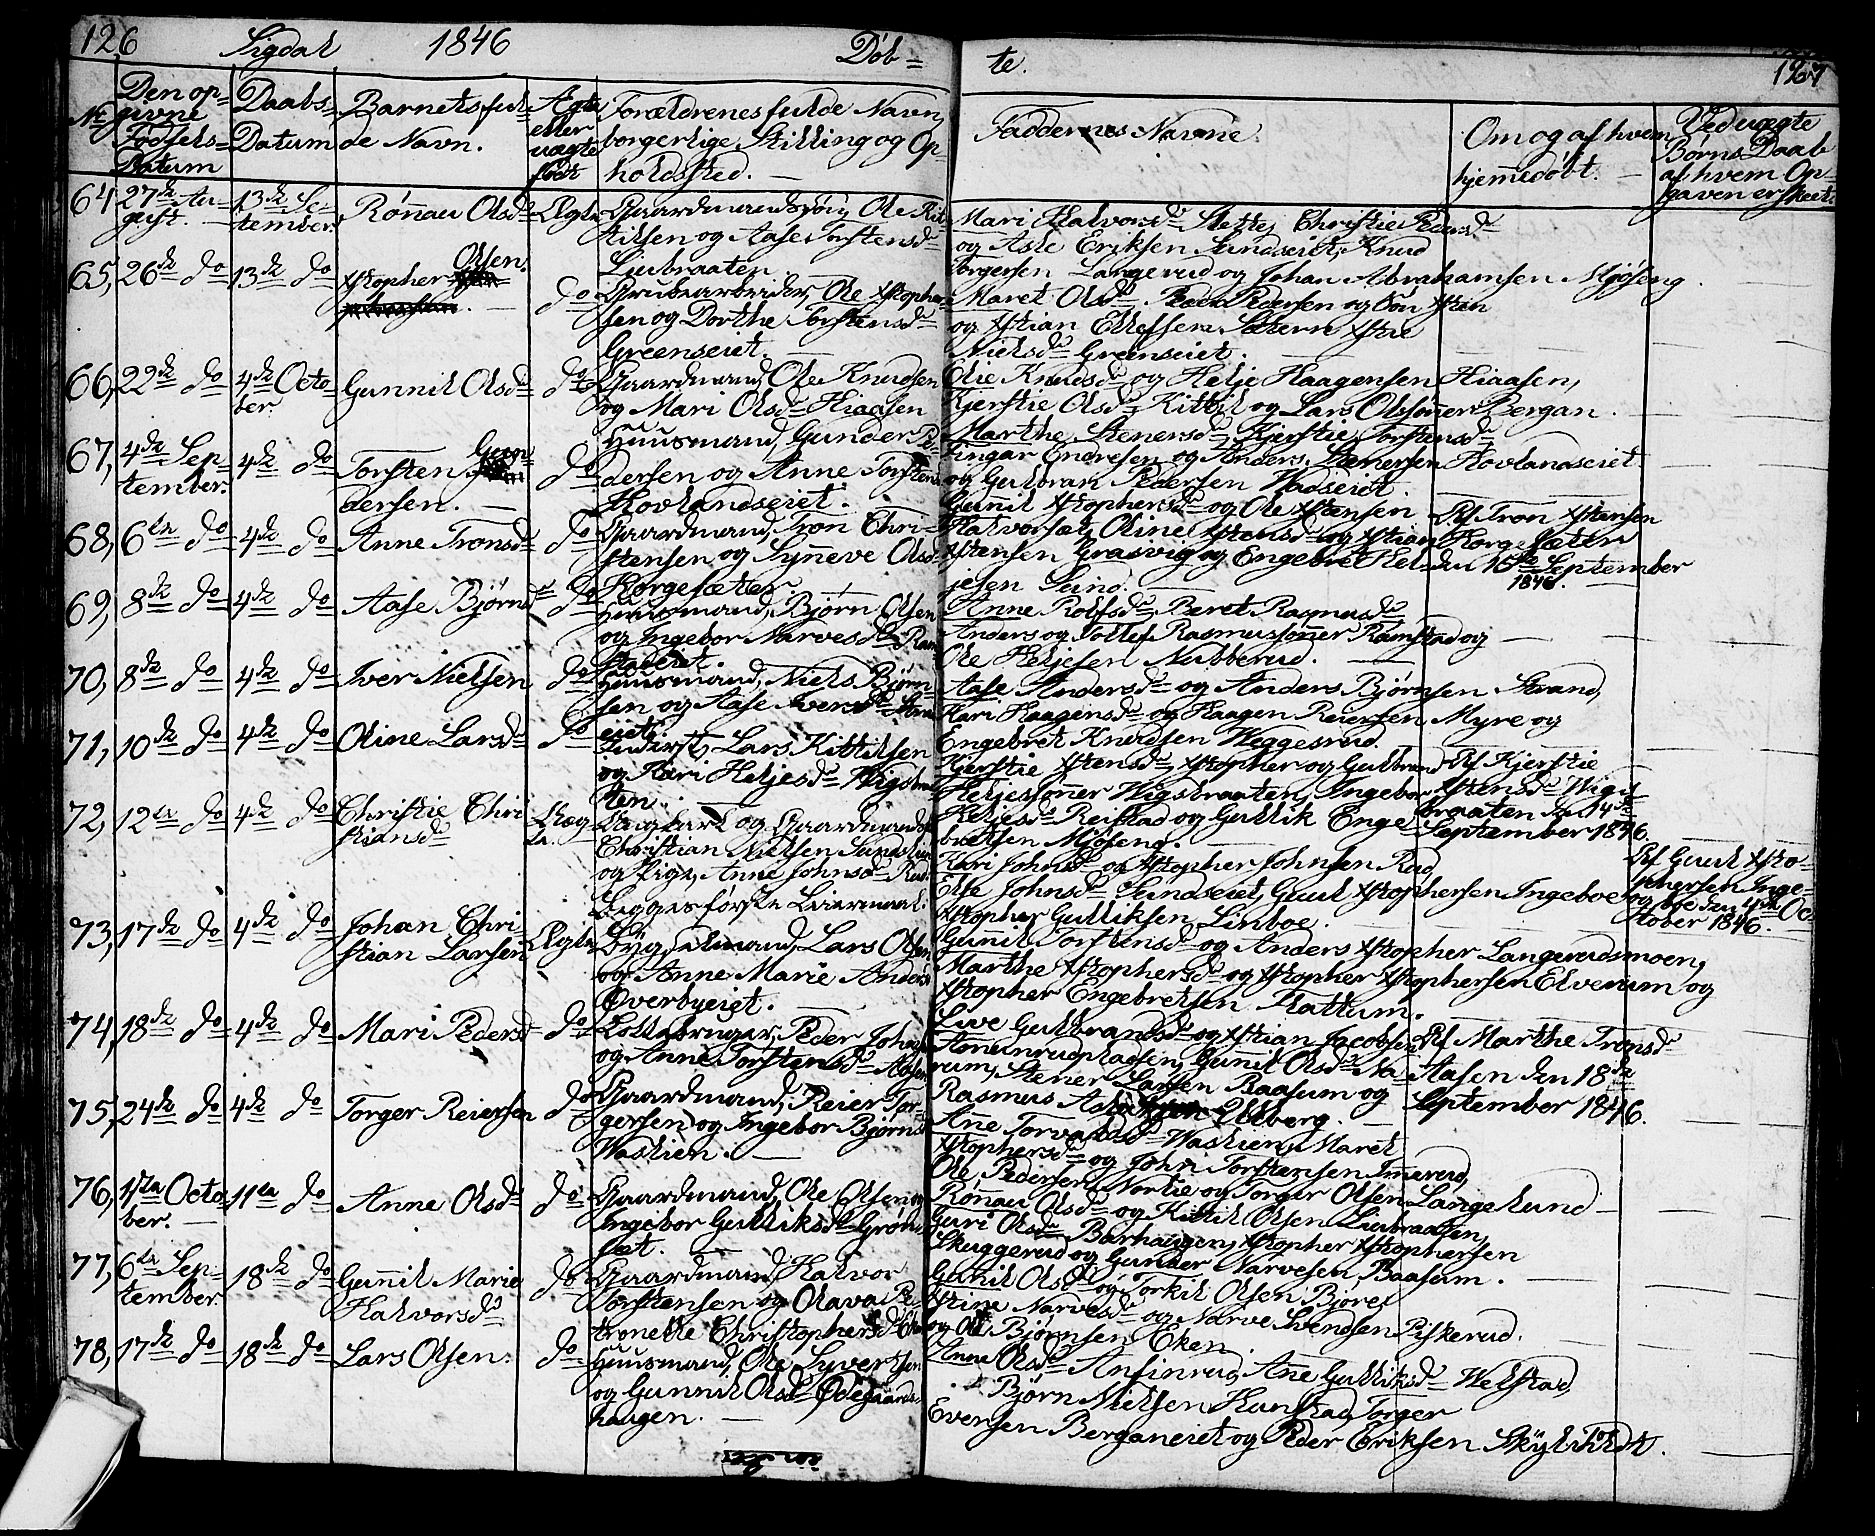 126 Sigdal 1846 Döb=
te. 127
No
Den op=
givne
Födsels=
Datum
Daabs=
Datum
Barnets ful=
de Navn.
Ægte
eller
uægte
født
Forældrenes fulde Navn,
borgerlige Stilling og Op=
holdssted.
Faddernes Navne
Om og af hvem
hjemmedöbt.
Ved uægte
Børns Daab
af hvem Op=
gaven er skeet.
64, 27de Au=
gust.
13de Se=
tember.
Rönnau Olsdr
Ægte
Gaardmandssön, Ole Kit
tilsen og Aase Torstensdr
Liubraaten
Mari Halvorsdr Slette, Christie Pedersdr
og Asle Eriksen Sundseiet, Knud
Torgersen Langerud og Johan Abrahamsen Mjøseng.
65, 26de do
13de do
Xstopher Olsen
do
Grubearbeider, Ole Xstopher
sen og Dorthe Torstensdr
Greenseiet.
Maret Olsdr Peder Pedersen og Sön Xsten
og Xstian Ellefsen Sætern Xstie
Nielsdr Greenseiet.
66, 22de do
4de Octo
ber.
Gunnil Olsdr
do
Gaardmand, Ole Knudsen
og Mari Olsdr Hiaasen
Elie Knudsdr og Helje Haagensen Hiaasen,
Kjerstie Olsdr, Kittil og Lars Olssønner Bergan.
67, 4de Sep=
tember.
4de do
Torsten Gun
dersen.
do
Huusmand, Gunder Pe
dersen og Anne Torstens
Hovlandseiet.
Marthe Stenersdr, Kjerstie Torstensdr
Fingar Endresen og Anders Stenersen Hovlandseiet
og Gulbran Pedersen Wadseiet.
68, 6te do
4de do
Anne Tronsdr
do
Gaardmand, Tron Chri=
stensen og Syneve Olsdr
Horgesæter.
Gunnil Xstophersdr og Ole Xstensen
Halvorsæt, Oline Xstensdr og Xstian
Xstensen Grasvig og Engebret Hel=
jesen Lund.
Af Tron Xstensen
Horgesæter
den 15de September
1846.
69, 8de do
4de do
Aase Björnsdr
do
Huusmand, Björn Olsen
og Ingebor Narvesdr Ram
stadeiet.
Anne Rolfsdr Beret Rasmusdr
Anders og Tollef Rasmussønner Ramstad og
Ole Heljesen Nubberud.
70, 8de do
4de do
Iver Nielsen
do
Huusmand, Niels Björn
sen og Aase Iversdr Stran
eiet.
Aase Andersdr og Anders Björnsen Strand,
Kari Haagensdr og Haagen Reiersen Myre og
Engebret Knudsen Weggesrud.
71, 10de do
4de do
Oline Larsdr
do
Inderst, Lars Kittilsen
og Kari Heljesdr Wigsbraa
ten.
Kjerstie Xstensdr, Xstopher og Gulbrand
Heljessønner Wigsbraaten, Ingebor
Heljesdr Reistad og Gullik Enge=
bretsen Mjøseng.
Af Kjerstie
Xstensdr Wigs
braaten den 14de
September 1846.
72, 12te do
4de do
Christie Chri
stiansdr
Uæg
te.
Ungkarl og Gaardmandssön
Christian Nielsen Sandseiet
og Pige, Anne Johnsdr Rud.
Begges første Leiermaal.
Kari Johnsdr og Xstopher Johnsen Rud,
Else Johnsdr Sundseiet, Guul Xstophersen Ingeboe og
Xstopher Gulliksen Linboe.
Af Guul Xsto=
phersen Inge=
boe den 4de Oc=
tober 1846.
73, 17de do
4de do
Johan Chri=
stian Larsen
Ægte
Bygselmand, Lars Olsen
og Anne Marie Anders
Overbyeiet.
Gunnil Torstensdr og Anders Xstopher Langerudsmoen,
Marthe Xstophersdr og Xstopher Xstophersen Elverum og
Xstopher Engebretsen Kattum.
74, 18de do
4de do
Mari Pedersdr
do
Kullebringer, Peder Johan
og Anne Torstensdr Aasen
Live Gulbrandsdr og Xstian Jacobsen
Gunnil Olsdr
rum, Stener Larsen Raasum og
Rasmus Ellberg.
Af Marthe Tronsdr
Aasen den 18de
September 1846.
75, 24de do
4de do
Torger Reiersen
do
Gaardmand, Reier Tor=
gersen og Ingebor Björnsdr
Waslien.
Ane Torvaldsdr Waslien, Maret
Xstophersdr og John Torstensen Immerud,
Ole Pedersen Nortie og Torger Olsen Langelund
76, 1ste Octo
ber.
11te do
Anne Olsdr
do
Gaardmand, Ole Olsen og
Ingebor Gulliksdr Grön
sæt.
Rönnau Olsdr og Kittil Olsen Liubraaten,
Guri Olsdr Barhaugen, Xstopher Xstophersen
Skuggerud og Gunder Narvesen Baasum.
77, 6te Sep=
tember.
18de do
Gunnil Marie
Halvorsdr
do
Gaardmand Halvor
Torstensen og Olava Pe
tronelle Christophersdr Eken
Gunil Olsdr og Torkil Olsen Bjøre,
Xstine Narvesdr og Narve Svendsen Piskerud.
og Ole Björnsen Eken
78, 17de do
18de do
Lars Olsen.
do
Huusmand, Ole Syvertsen
og Gunnil Olsdr Ødegaards
haugen.
Anne Olsdr Anfinrud, Ane Gulliksdr Welstad,
Björn Nielsen Hanstad, Torger
Evensen Berganeiet og Peder Eriksen Skylstedt.